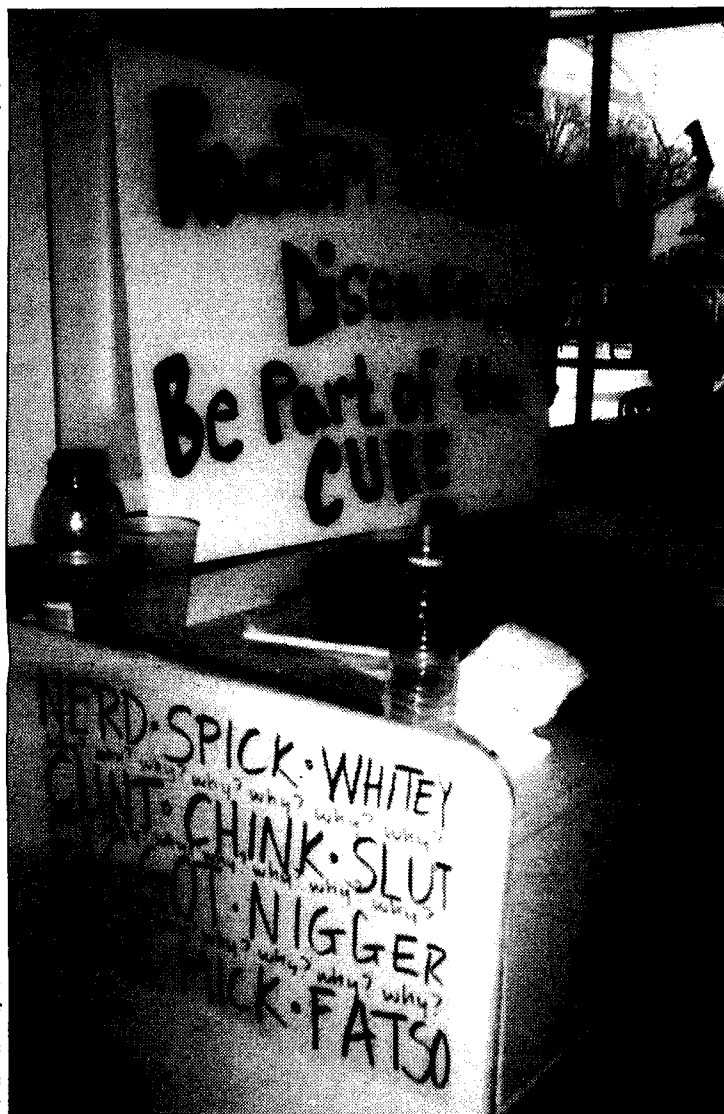 Racism
Disease
Be Part of the
CURE
NERD·SPICK·WHITEY
why? why? why? why? why?
CUNT·CHINK·SLUT
why? why? why? why?
OT·NIGGER
why? why? why? why?
MICK·FATSO